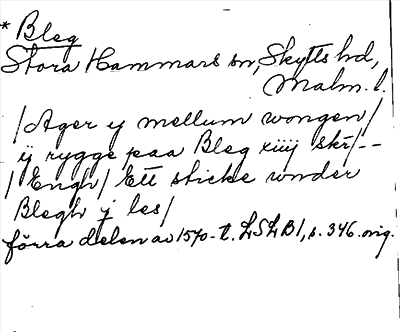 * Bleg
Stora Hammars sn, Skytts hd,
Malm. l.
/Ager y mellum wongen/
ij rygge paa Bleg xiiij skr/--
/Engh/ Ett sticke wnder
Blegh j les/
förra delen av 1570-t. LSLB1, s. 346. orig.